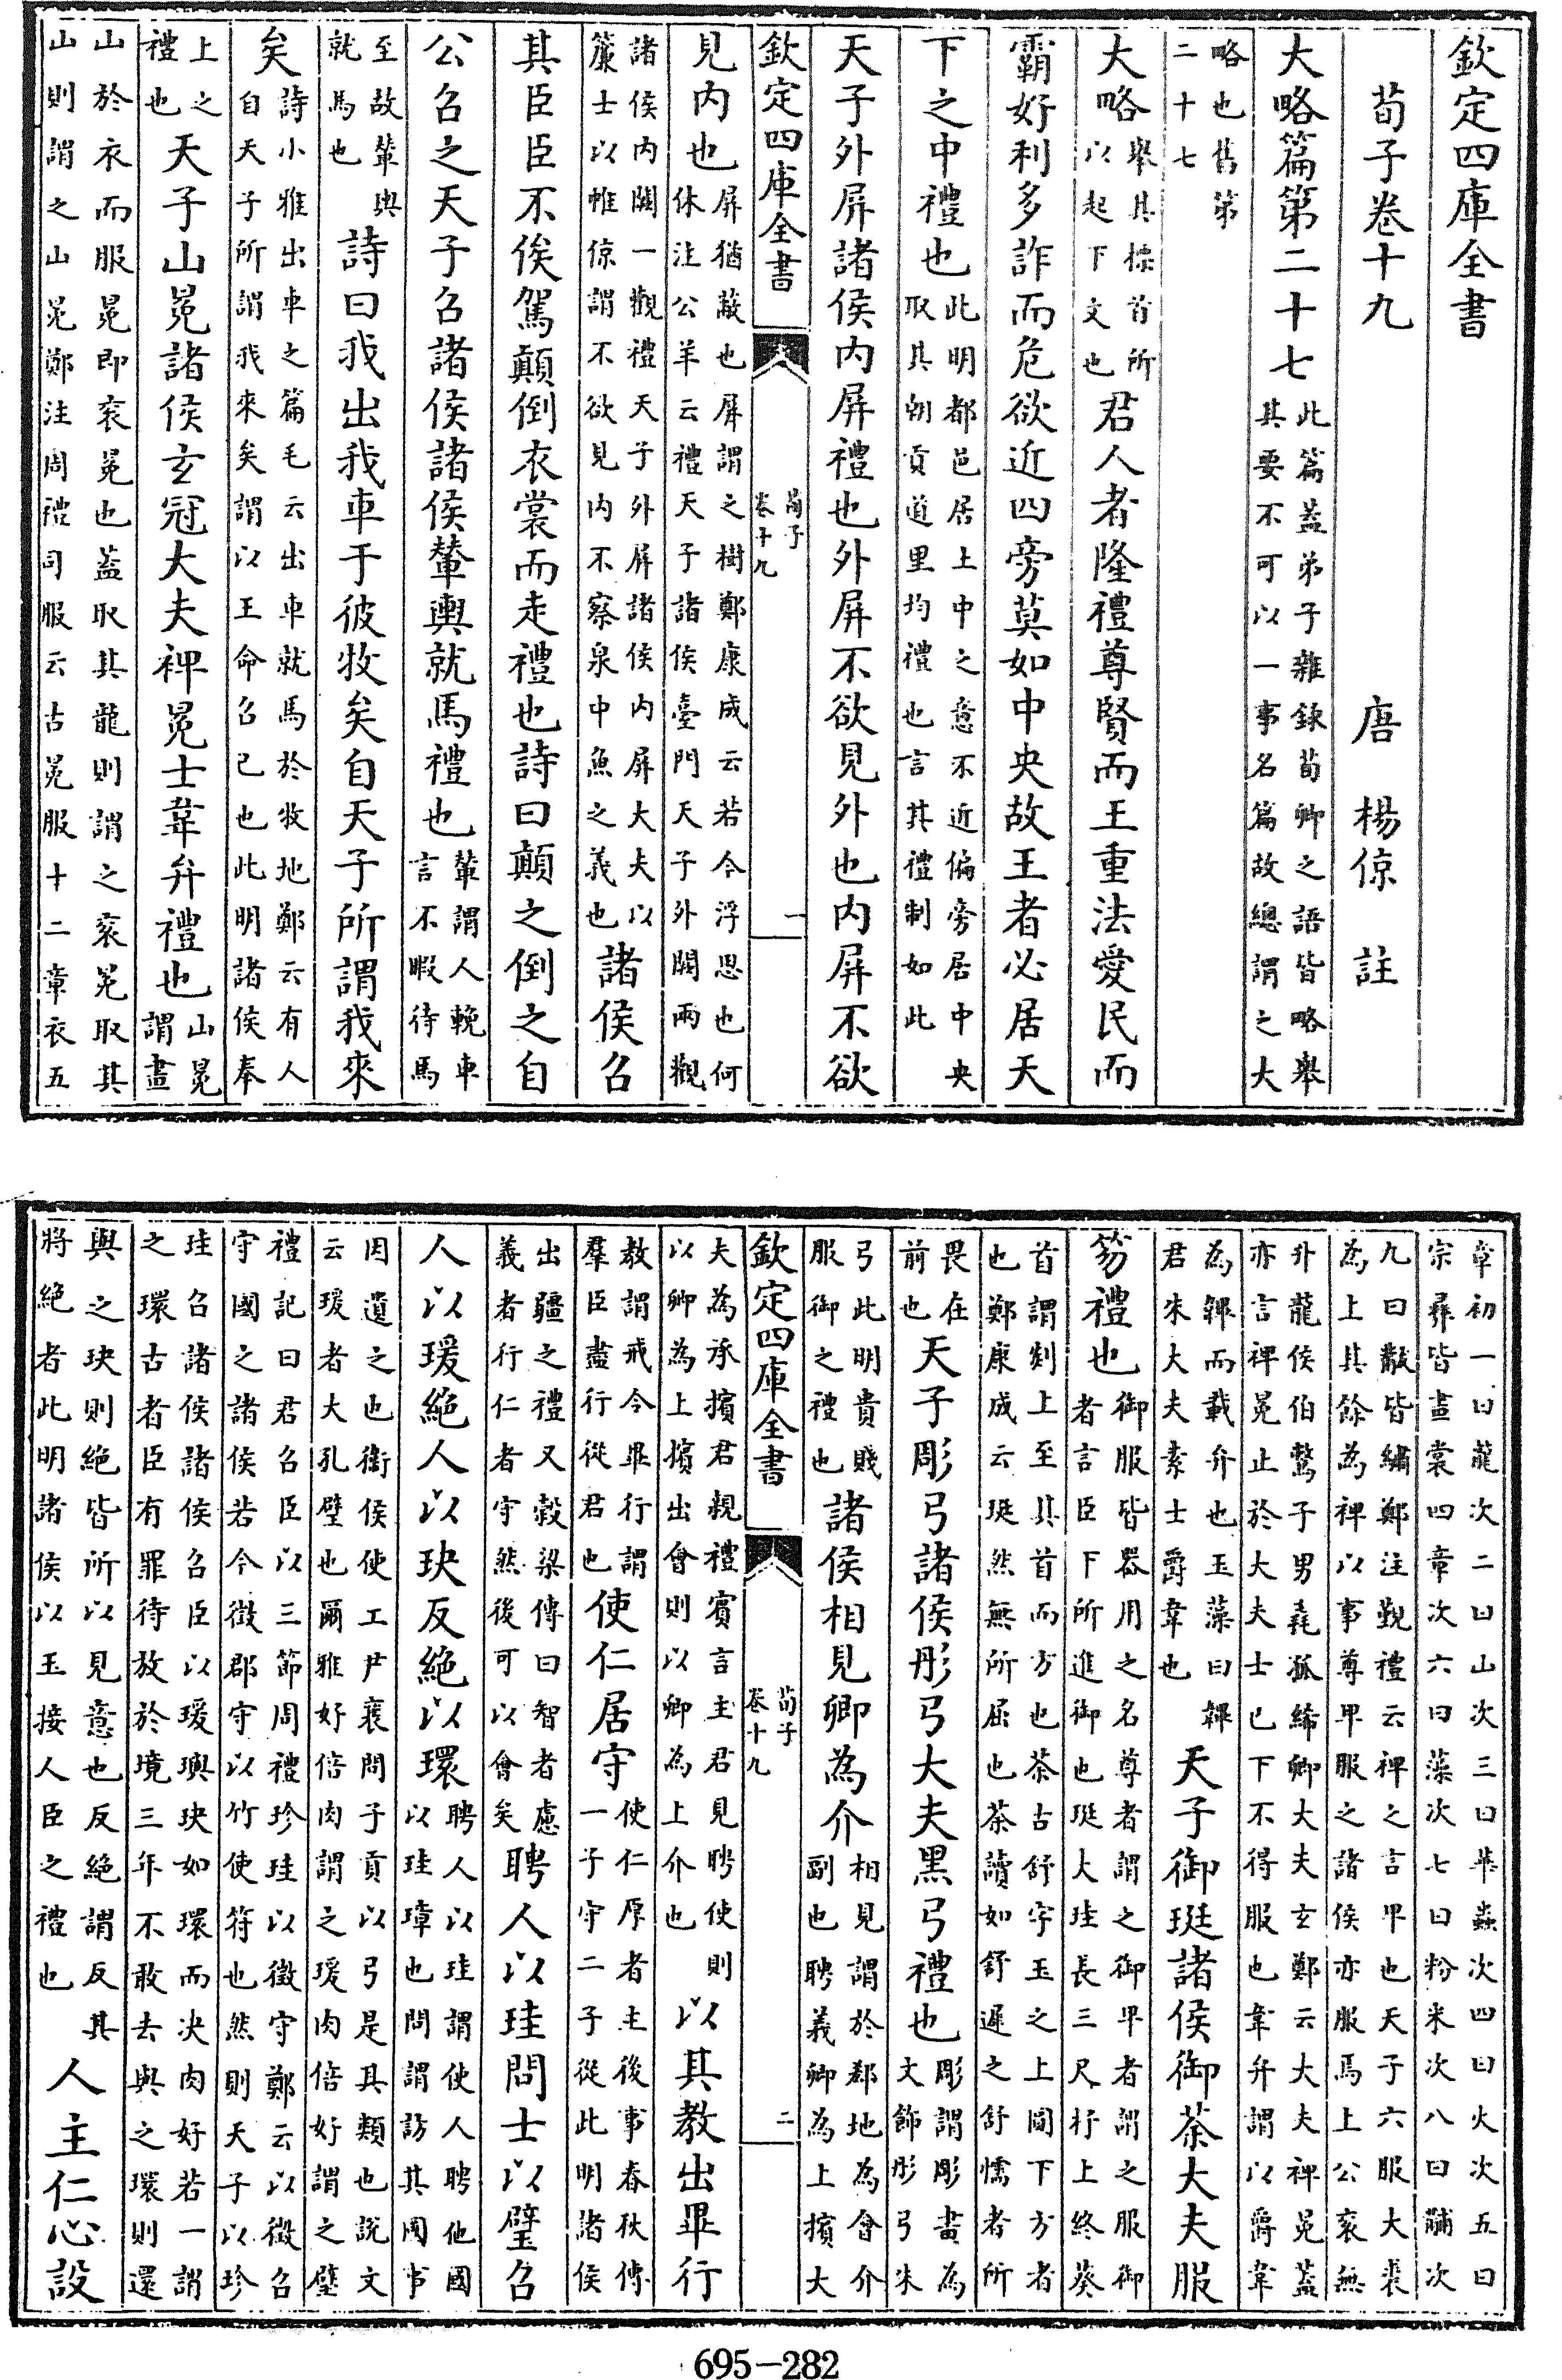 欽定四庫全書
荀子卷十九
唐 楊倞 註
大略篇第二十七此篇蓋弟子雜錄荀卿之語皆略舉其要不可以一事名篇故總謂之大
略也舊第二十七
大略舉其標首所以起下文也君人者隆禮尊賢而王重法愛民而
霸好利多詐而危欲近四旁莫如中央故王者必居天
下之中禮也此明都邑居土中之意不近偏旁居中央取其朝貢道里均禮也言其禮制如此
天子外屏諸侯内屏禮也外屏不欲見外也内屏不欲
欽定四庫全書
荀子
卷十九
一
見内也屏猶蔽也屏謂之樹鄭康成云若今浮思也何休注公羊云禮天子諸侯臺門天子外闕兩觀
諸侯内闕一觀禮天子外屏諸侯内屏大夫以簾士以帷倞謂不欲見内不察泉中魚之義也諸侯召
其臣臣不俟駕顛倒衣裳而走禮也詩曰顛之倒之自
公召之天子召諸侯諸侯輦輿就馬禮也輦謂人輓車言不暇待馬
至故輦輿就馬也詩曰我出我車于彼牧矣自天子所謂我來
矣詩小雅出車之篇毛云出車就馬於牧地鄭云有人自天子所謂我來矣謂以王命召已也此明諸侯奉
上之禮也天子山冕諸侯玄冠大夫裨冕士韋弁禮也山冕謂畫
山於衣而服冕即衮冕也蓋取其龍則謂之衮冕取其山則謂之山冕鄭注周禮司服云古冕服十二章衣五
章初一曰龍次二曰山次三曰華蟲次四曰火次五曰宗彝皆畫裳四章次六曰藻次七曰粉米次八曰黼次
九曰黻皆繡鄭注覲禮云裨之言卑也天子六服大裘為上其餘為裨以事尊卑服之諸侯亦服焉上公衮無
升龍侯伯鷩子男毳孤絺卿大夫玄鄭云大夫裨冕蓋亦言裨冕止於大夫士已下不得服也韋弁謂以爵韋
為韠而載弁也玉藻曰韠君朱大夫素士爵韋也天子御珽諸侯御荼大夫服
笏禮也御服皆器用之名尊者謂之御卑者謂之服御者言臣下所進御也珽大珪長三尺杼上終葵
首謂剡上至其首而方也荼古舒字玉之上圓下方者也鄭康成云珽然無所屈也荼讀如舒遲之舒懦者所
畏在前也天子彫弓諸侯彤弓大夫黑弓禮也彫謂彫畫為文飾彤弓朱
弓此明貴賤服御之禮也諸侯相見卿為介相見謂於郄地為會介副也聘義卿為上擯大
欽定四庫全書
荀子
卷十九
二
夫為承擯君親禮賓言主君見聘使則以卿為上擯出會則以卿為上介也以其教出畢行
教謂戒令畢行謂羣臣盡行從君也使仁居守使仁厚者主後事春秋傳一子守二子從此明諸侯
出疆之禮又穀梁傳曰智者慮義者行仁者守然後可以會矣聘人以珪問士以璧召
人以瑗絕人以玦反絕以環聘人以珪謂使人聘他國以珪璋也問謂訪其國事
因遺之也衛侯使工尹襄問子貢以弓是其類也說文云瑗者大孔璧也爾雅好倍肉謂之瑗肉倍好謂之璧
禮記曰君召臣以三節周禮珍珪以徵守鄭云以徵召守國之諸侯若今徵郡守以竹使符也然則天子以珍
珪召諸侯諸侯召臣以瑗璵玦如環而决肉好若一謂之環古者臣有罪待放於境三年不敢去與之環則還
與之玦則絕皆所以見意也反絕謂反其將絕者此明諸侯以玉接人臣之禮也人主仁心設
695-282